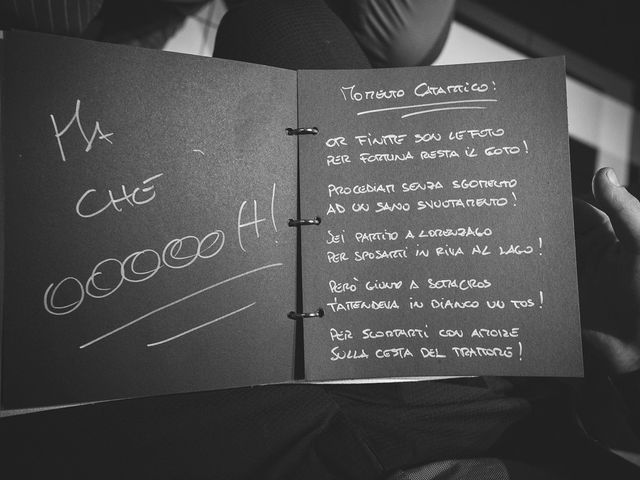 MA
CHE
OOOOOH!
MOMENTO CATARTICO!
OR FINITE SON LE FOTO
PER FORTUNA RESTA IL GOTO!
PROCEDIAM SENZA SGOMENTO
AD UN SANO SVUOTAMENTO!
SEI PARTITO A LORENZAGO
PER SPOSARTI IN RIVA AL LAGO!
PERÒ GIUNO A
T'ATTENDEVA IN BIANCO UN TOS!
PER SCORTARTI CON AMORE
SULLA CESTA DEL TRATTORE!